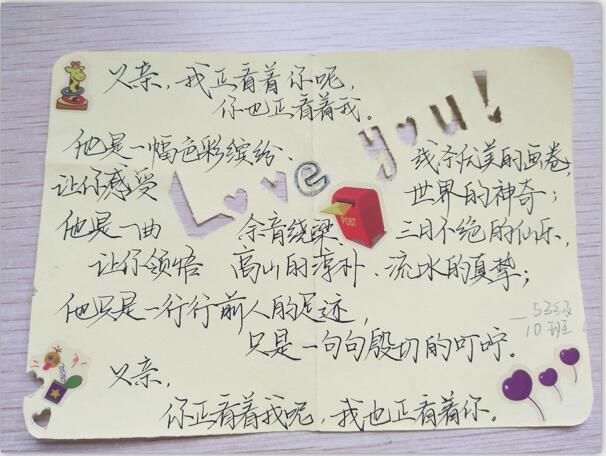 父亲，我正看着你呢，
你也正看着我。
Love you!
他是一幅色彩缤纷、线条优美的画卷，
让你感受世界的神奇；
他是一曲余音绕梁、三日不绝的仙乐，
POST
让你领悟高山的淳朴、流水的真挚；
他只是一行行前人的足迹，
只是一句句殷切的叮咛。
—53级
10班
父亲，
你正看着我呢，我也正看着你。